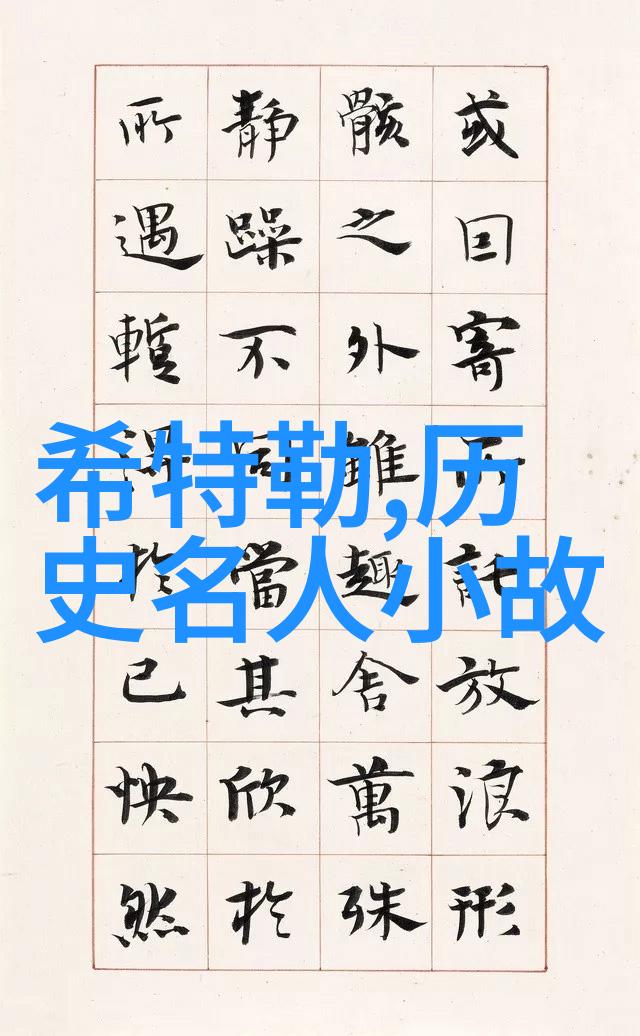 或因寄所託放浪形
骸之外雖趣舍萬殊
靜躁不同當其欣於
所遇暫得於己怏然
希特勒,历
史名人小故